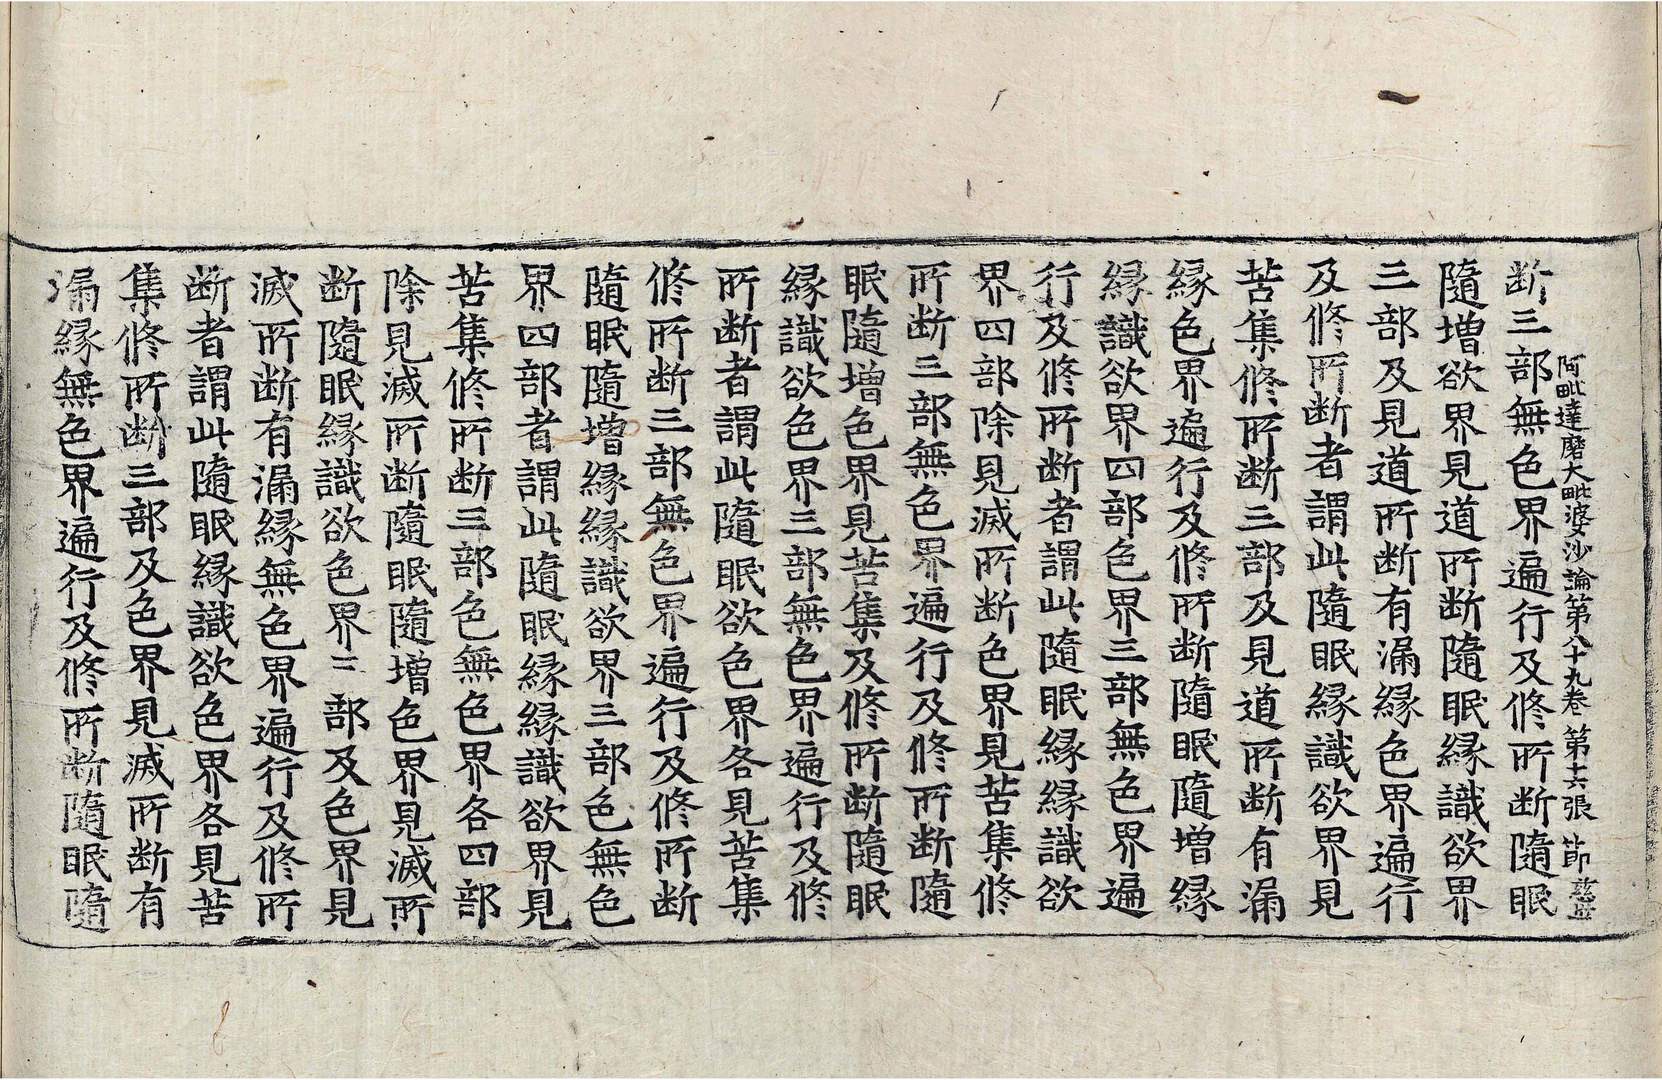 阿毗達磨大毗婆沙論第八十九卷 第十六張 節
断三部無色界遍行及修所断隨眠
隨増欲界見道所断隨眠縁識欲界
三部及見道所断有漏縁色界遍行
及修所断者謂此隨眠縁識欲界見
苦集修所断三部及見道所断有漏
縁色界遍行及修所断隨眠隨増縁
縁識欲界四部色界三部無色界遍
行及修所断者謂此隨眠縁縁識欲
界四部除見滅所断色界見苦集修
所断三部無色界遍行及修所断隨
眠隨増色界見苦集及修所断隨眠
縁識欲色界三部無色界遍行及修
所断者謂此隨眠欲色界各見苦集
修所断三部無色界遍行及修所断
隨眠隨増縁縁識欲界三部色無色
界四部者謂此隨眠縁縁識欲界見
苦集修所断三部色無色界各四部
除見滅所断隨眠隨増色界見滅所
断隨眠縁識欲色界三部及色界見
滅所断有漏縁無色界遍行及修所
断者謂此隨眠縁識欲色界各見苦
集修所断三部及色界見滅所断有
漏縁無色界遍行及修所断隨眠隨